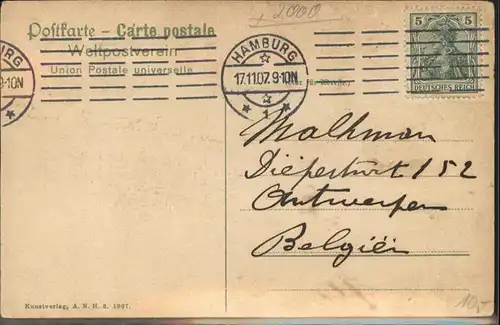 + 2000
Postkarte – Carte postale
Weltpostverein
Union Postale universelle
BURG
9-10N
HAMBURG
17.11.07. 9-10N
* 1 *
5 5
DEUTSCHES REICH
Malkman
152
Antwerpen
Belgiën
Kunstverlag, A. N. H. 3. 1907.
10,-